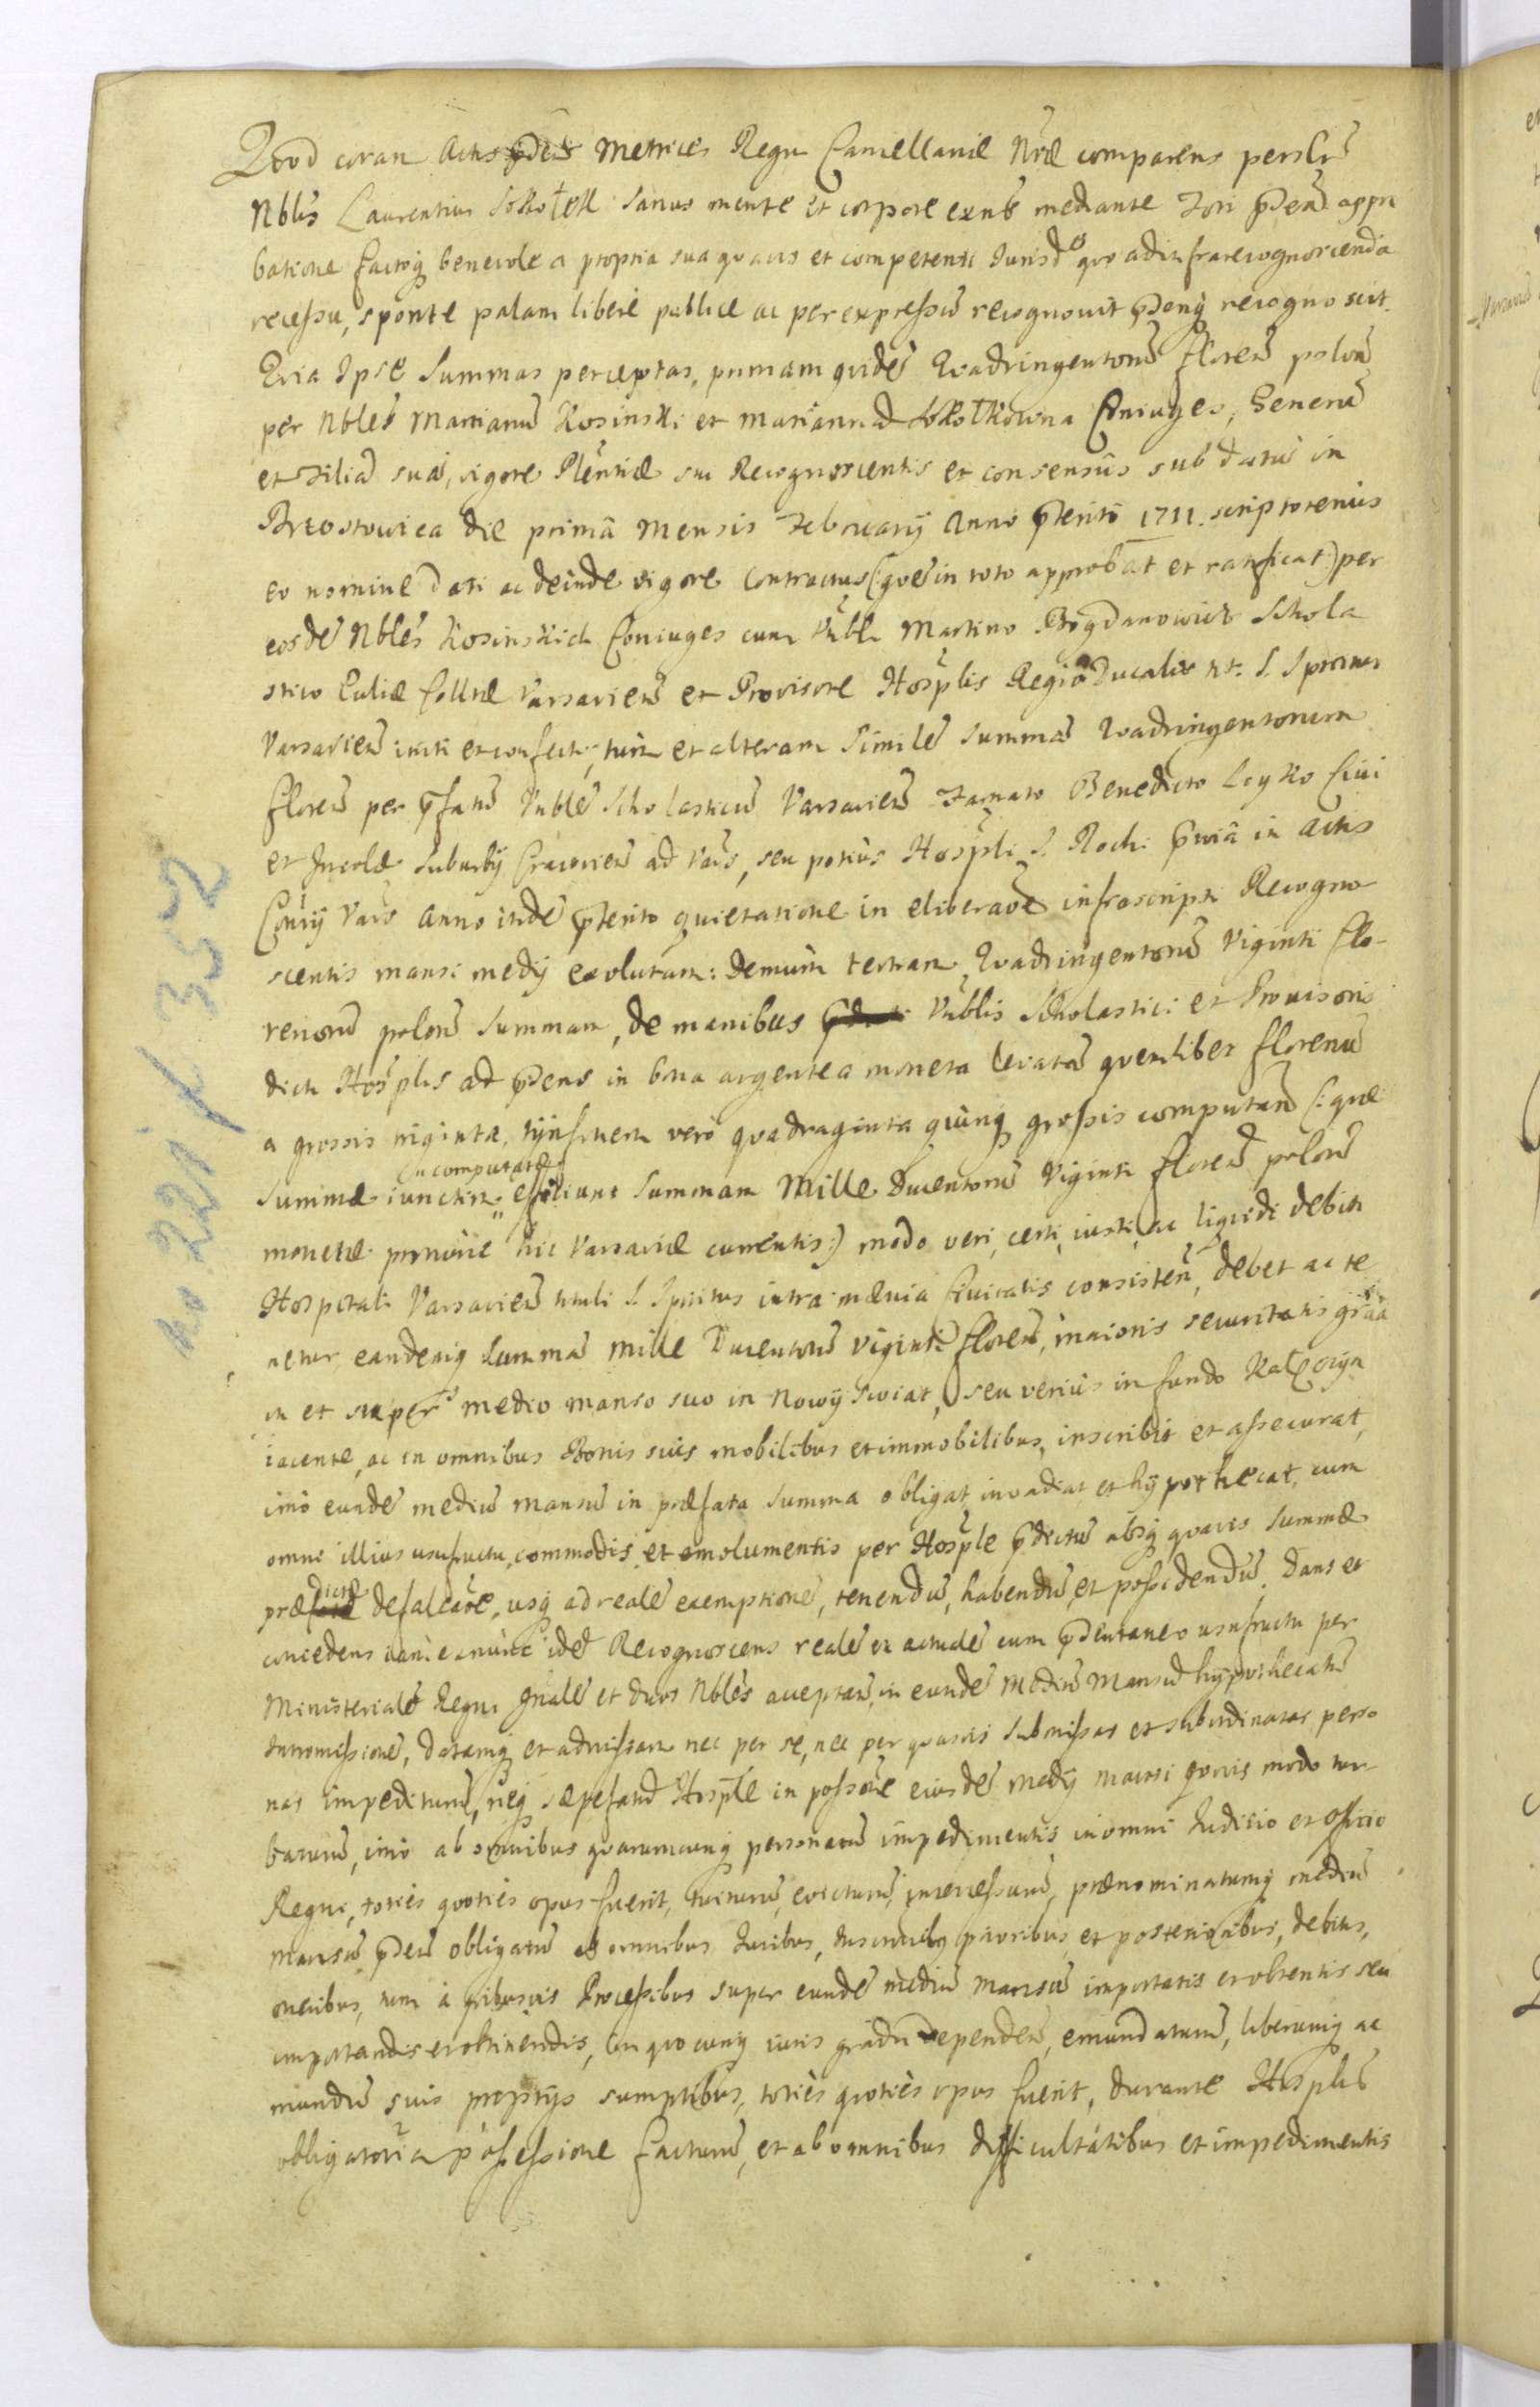 Quod coram Actis pñtibus Metrices Regni Cancellariæ Nræ comparens perslr
Nblis Laurentius Sokołek sanus mente et corpore exñs mediante Fori pñtis appro
batione factoq benevole a propria sua quavis et competenti Jurisdõe quo ad infra recognoscenda
recessu, sponte palam libere publice ac per expressum recognovit pñtibq recognoscit.
Quia Ipse Summas perceptas, primam quidẽ Quadringentorũ florenũ polonũ
per Nbles Martianũ Kosinski et Mariannã Sokołkowna Coniuges, Generũ
et Filiã suã, vigore Plenñtiæ sui Recognoscentis et consensus sub datũ in
Brzostowica die primã Mensis February Anno præterito 1711. scriptotenus
eo nomine dati ac deinde vigore Contractus (: quẽ in toto approbat et ratificat :) per
eosdẽ Nbles Kosinskich Coniuges cum Vnbli Martino Bogdanowicz Schola
stico Eccliæ Colltæ Varsavieñ et Provisore Hospĩlis Regio Ducalis tt: S. Spiritus
Varsavieñ initi et confecti, tum et alteram similẽ summã Quadringentorum
florenũ per præfatũ Vnblẽ Scholasticũ Varsavieñ Famato Benedicto Leyko Civi
et Incolæ Suburbÿ Cracovieñ ad Vars, seu potius Hospĩli S. Rochi præviâ in Actis
Consrÿ Vars Anno itidẽ præterito quietatione in eliberaõẽ infrascripti Recogno
scentis mansi medÿ exolutam: Demum tertiam Quadringentorũ Viginti Flo-
renorũ polonũ Summam, de manibus Vnblis Scholastici et Provisoris
dicti Hospĩlis ad præsens in bona argentea moneta levatã quemlibet florenũ
a grossis triginta, tÿnfonem vero quadraginta quinq grossis computando (: quæ
Summæ iunctim computatæ efficiunt Summam Mille Ducentorũ Viginti florenũ polonũ
monetæ pronunc hic Varsaviæ currentis :) modo veri, certi, iusti, ac liquidi debiti
Hospitali Varsavieñ tituli S. Spiritus intra mænia Civitatis consisteñ, debet ac te
netur, eandemq Summã Mille Ducentorũ Viginti florenũ, maioris securitatis grãa
in et super medio manso suo in Nowÿ Swiat, seu verius in fundo Kałęczyn
iacente, ac in omnibus Bonis suis mobilibus et immobilibus, inscribit et assecurat,
imo eundẽ mediũ mansũ in præfata Summa obligat, invadiat et hÿpothecat, cum
omni illius usufructu, commodis, et emolumentis per Hospĩle prædictũ absq quavis Summæ
prædictæ defalcaõe, usq ad realẽ exemptionẽ, tenendũ, habendũ, et possidendũ. Dans et
concedens iam ex nunc idẽ Recognoscens realẽ et actualẽ cum præsentaneo usufructu per
Ministerialẽ Regni Gnalẽ et duos Nbles acceptan, in eundẽ Mediũ Mansũ hÿpothecatũ
Intromissionẽ, Datamq et admissam nec per se, nec per quasvis submissas et subordinatas perso
nas impediturũ, neq sæpefatũ Hospĩle in possõe eiusdẽ Medÿ Mansi quovis modo tur
baturũ, imo ab omnibus quarumcunq personarũ impedimentis in omni Iudicio et officio
Regni, toties quoties opus fuerit, tuiturũ, evicturũ, intercessurũ, prænominatumq mediũ
mansũ pñtibus obligatũ ab omnibus Iuribus, Inscriptionibq prioribus, et posterioribus, debitis,
oneribus, tum a quibusvis Processibus super eundẽ mediũ Mansũ importatis et obtentis seu
importandis et obtinendis, in quocunq iuris gradu dependeñ, emundaturũ, liberumq ac
mundũ suis proprÿs sumptibus, toties quoties opus fuerit, durante Hospĩlis
obligatoria possessione facturũ, et ab omnibus difficultatibus et impedimentis
no 221 f. 352